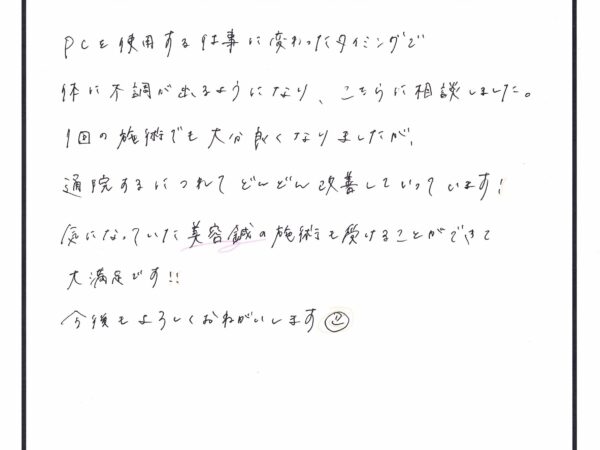 PCを使用する仕事に変わったタイミングで
体に不調が出るようになり、こちらに相談しました。
1回の施術でも大分良くなりましたが、
通院するにつれてどんどん改善していっています!
気になっていた美容鍼の施術も受けることができて
大満足です!!
今後もよろしくおねがいします☺